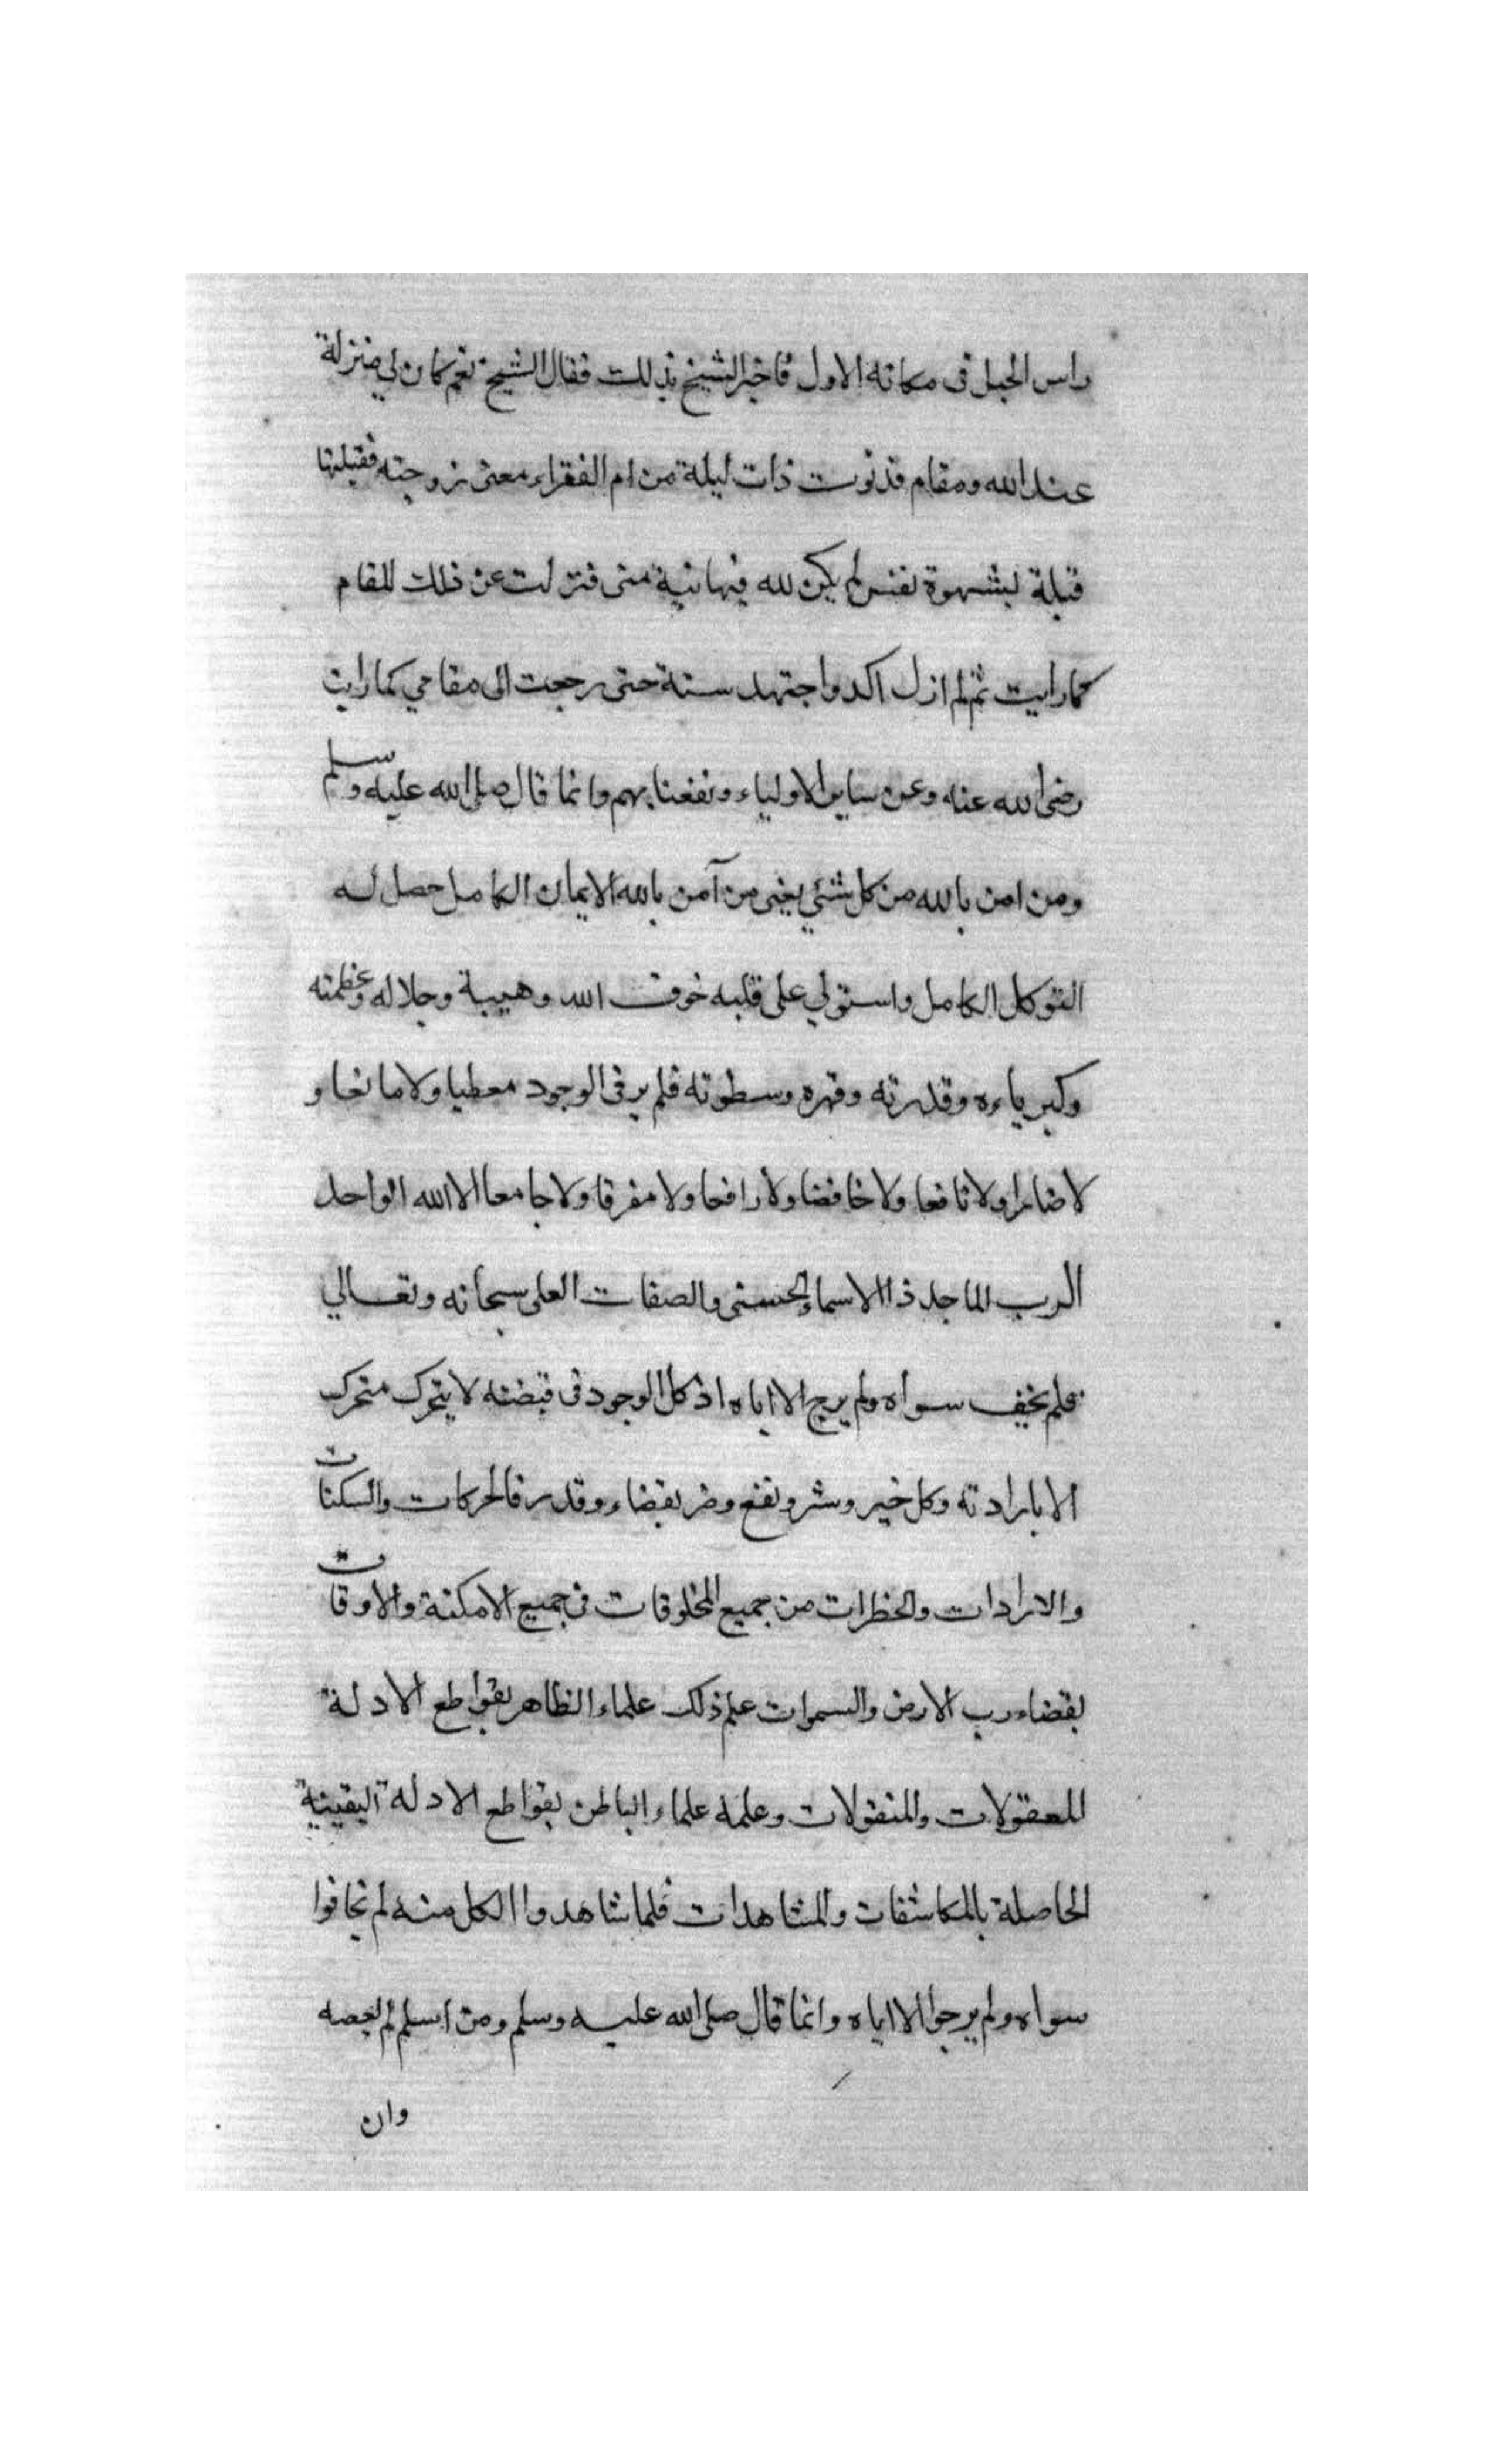 راس الجبل فى مكانه الاول فاخبر الشيخ بذلك فقال الشيخ نعم كان لي منزلة
عند الله ومقام فدنوت ذات ليلة من ام الفقراء معنى زوجته فقبلتها
قبلة لشهوة نفس لم يكن لله فيها نية منى فنزلت عن ذلك المقام
كما رايت ثم لم ازل اكد واجتهد سنة حتى رجعت الى مقامي كما رايت
رضى الله عنه وعن ساير الاولياء ونفعنا بهم وانما قال صلى الله عليه وسلم
ومن امن بالله من كل شئي يعني من آمن بالله الايمان الكامل حصل له
التوكل الكامل واستولي على قلبه خوف الله وهيبة وجلاله وعظمته
وكبرياءه وقدرته وقهره وسطوته فلم ير فى الوجود معطيا ولا مانعا و
لا ضارا ولا نافعا ولا خافضا ولا رافعا ولا مفرقا ولا جامعا الا الله الواحد
الرب الماجد ذا الاسماء الحسنى والصفات العلى سبحانه وتعالي
فلم يخف سواه ولم يرج الا اياه اذ كل الوجود فى قبضته لا يتحرك متحرك
الا بارادته وكل خير وشر ونفع وضر بقضاء وقدر فالحركات والسكنات
والارادات والخطرات من جميع المخلوقات فى جميع الامكنة والاوقات
بقضاء رب الارض والسموات علم ذلك علماء الظاهر بقواطع الادلة
المعقولات والمنقولات وعلمه علماء الباطن بقواطع الادلة اليقينية
الحاصلة بالمكاشفات والمشاهدات فلما شاهدوا الكل منه لم يخافوا
سواه ولم يرجوا الا اياه وانما قال صلى الله عليه وسلم ومن اسلم لم يعصه
وان